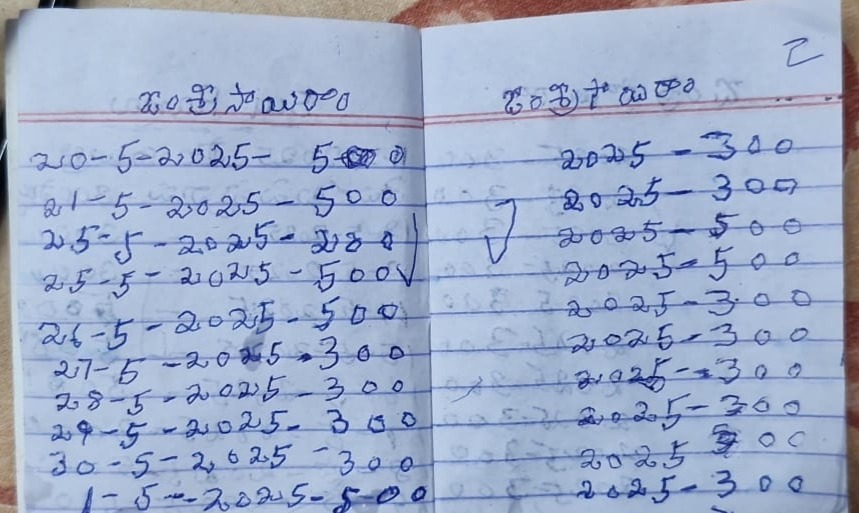 ఓం శ్రీ సాయిరాం
20-5-2025- 500
21-5-2025-500
25-5-2025-200
25-5-2025-500
26-5-2025-500
27-5-2025-300
28-5-2025-300
29-5-2025-300
30-5-2025-300
1-5-2025-500
2
ఓం శ్రీ సాయిరాం
2025-300
2025-300
2025-500
2025-500
2025-300
2025-300
2025-300
2025-300
2025
2025-300